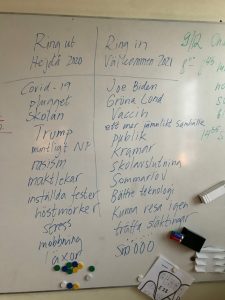 Ring ut
Hejdå 2020
Covid-19
plugget
Skolan
Trump
muntligt NP
rasism
maktlekar
inställda fester
höstmörkert
stress
mobbning
läxor
Ring in
Välkommen 2021
Joe Biden
Gröna Lund
Vaccin
ett mer jämlikt samhälle
publik
kramar
skolavslutning
Sommarlov
Bättre teknologi
Kunna resa igen
träffa släktingar
9/12